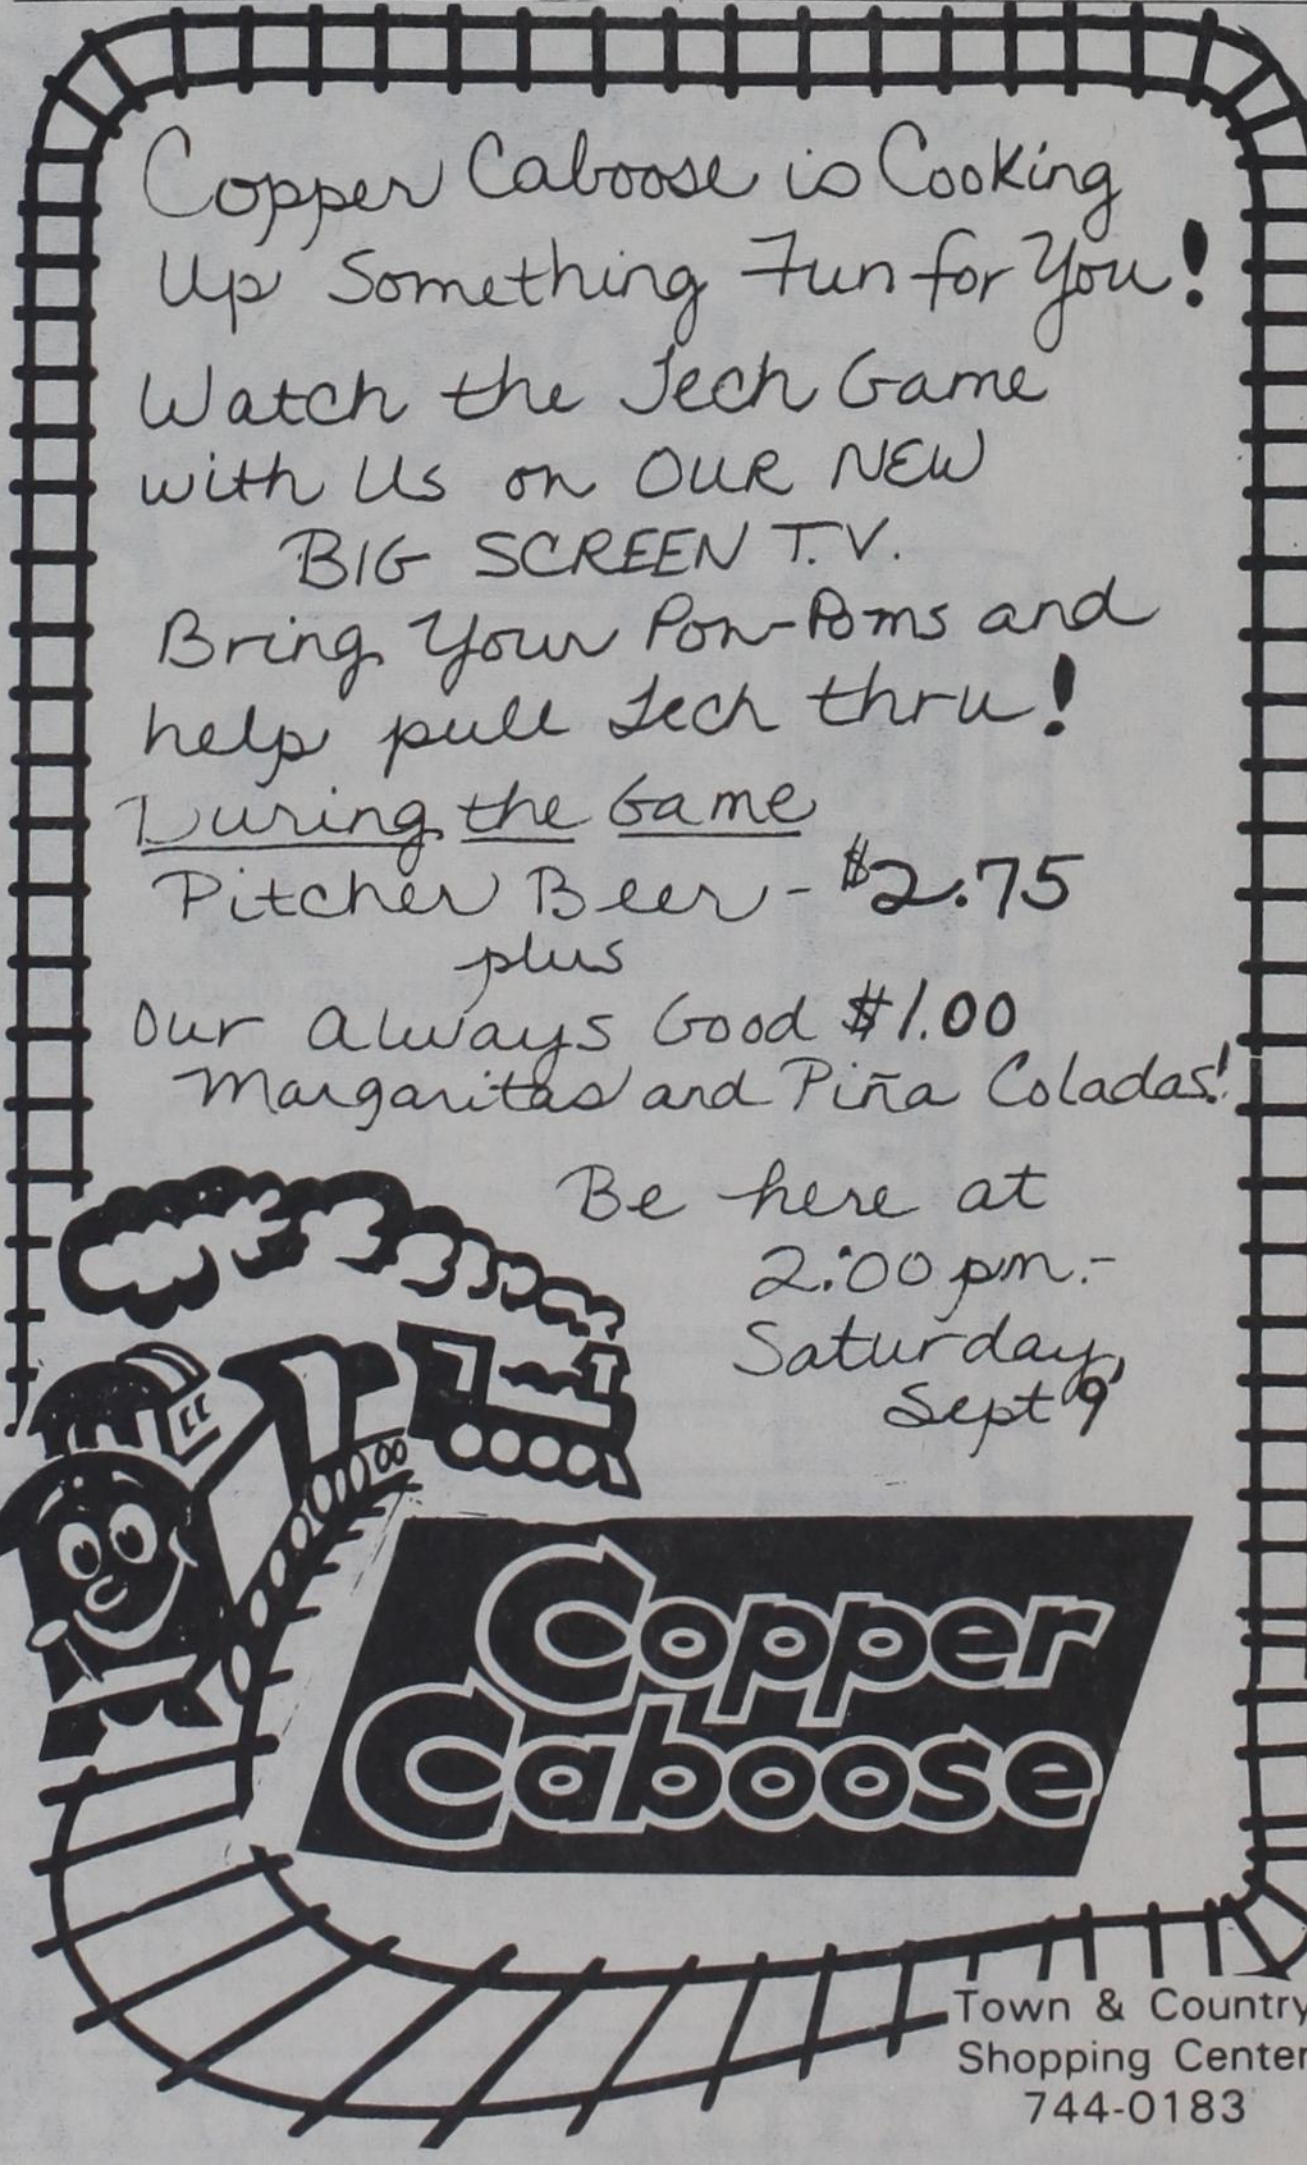 Copper Caboose is Cooking
Up Something Fun for You!
Watch the Tech Game
with Us on OUR NEW
BIG SCREEN T.V.
Bring Your Pom-Poms and
help pull Tech thru!
During the Game
Pitcher Beer - $2.75
plus
Our Always Good $1.00
Margaritas and Piña Coladas!
Be here at
2:00 pm.-
Saturday,
Sept 9
Copper
Caboose
Town & Country
Shopping Center
744-0183